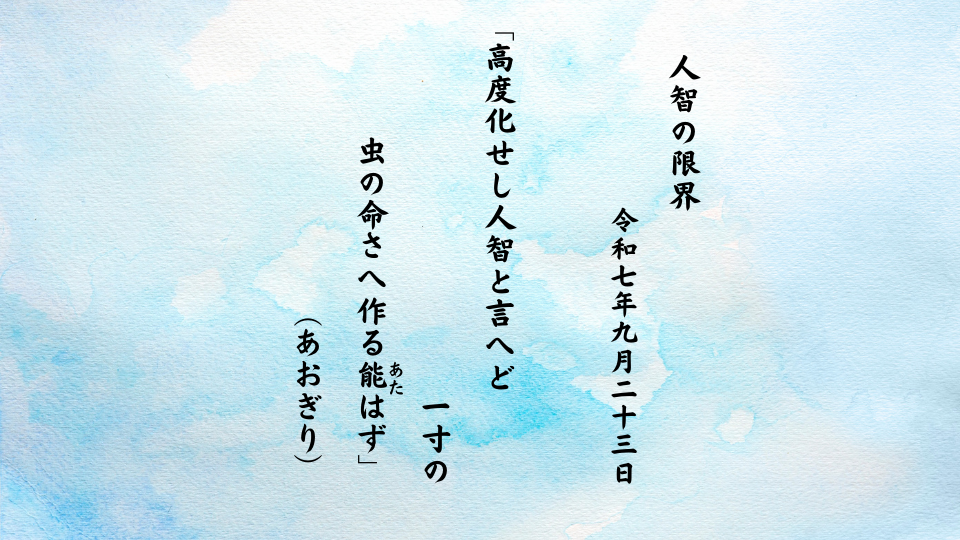 人智の限界
令和七年九月二十三日
「高度化せし人智と言へど
一寸の
虫の命さへ作る能はず」
あた
（あおぎり）